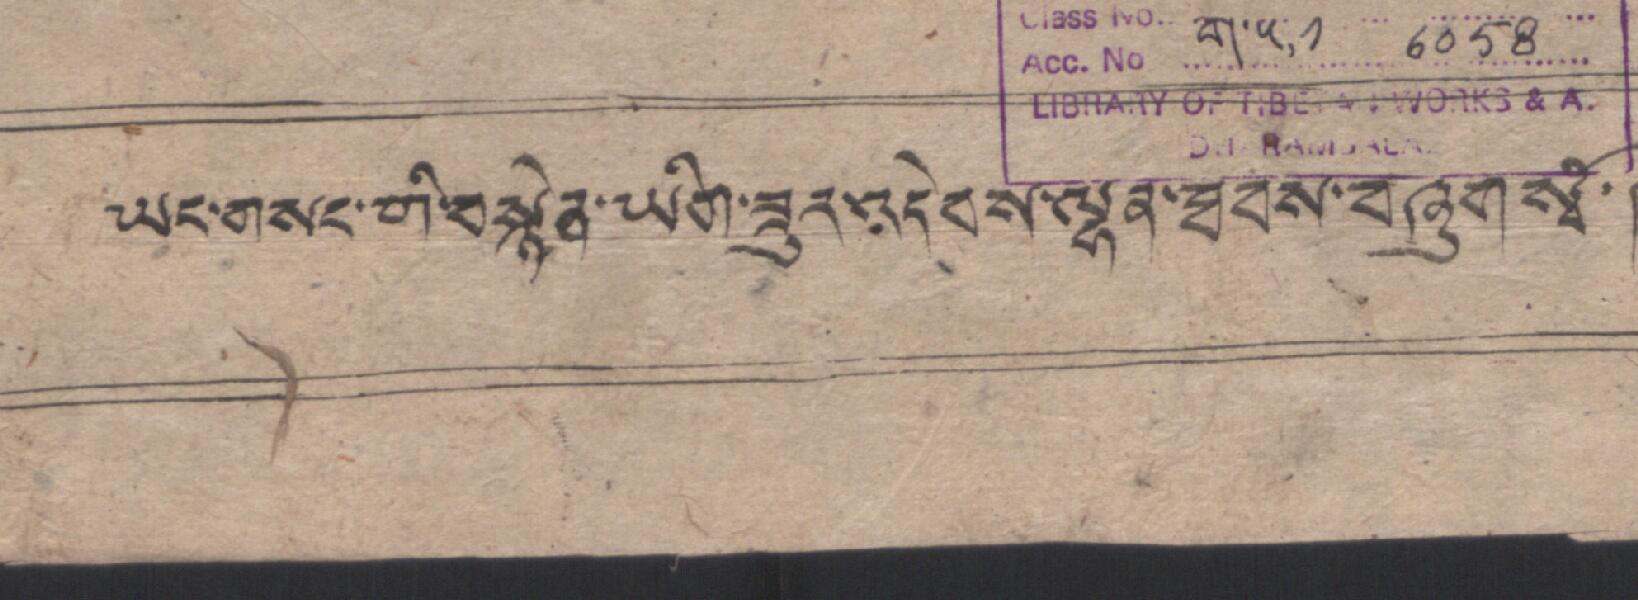 Class No.. ཀ.༥,༡
Acc. No 6058
LIBRARY OF TIBETAN WORKS & A.
DHARAMSALA.
ཡང་གསང་གི་བསྙེན་ཡིག་ཟུར་འདེབས་ལྷན་ཐབས་བཞུགས་སོ།